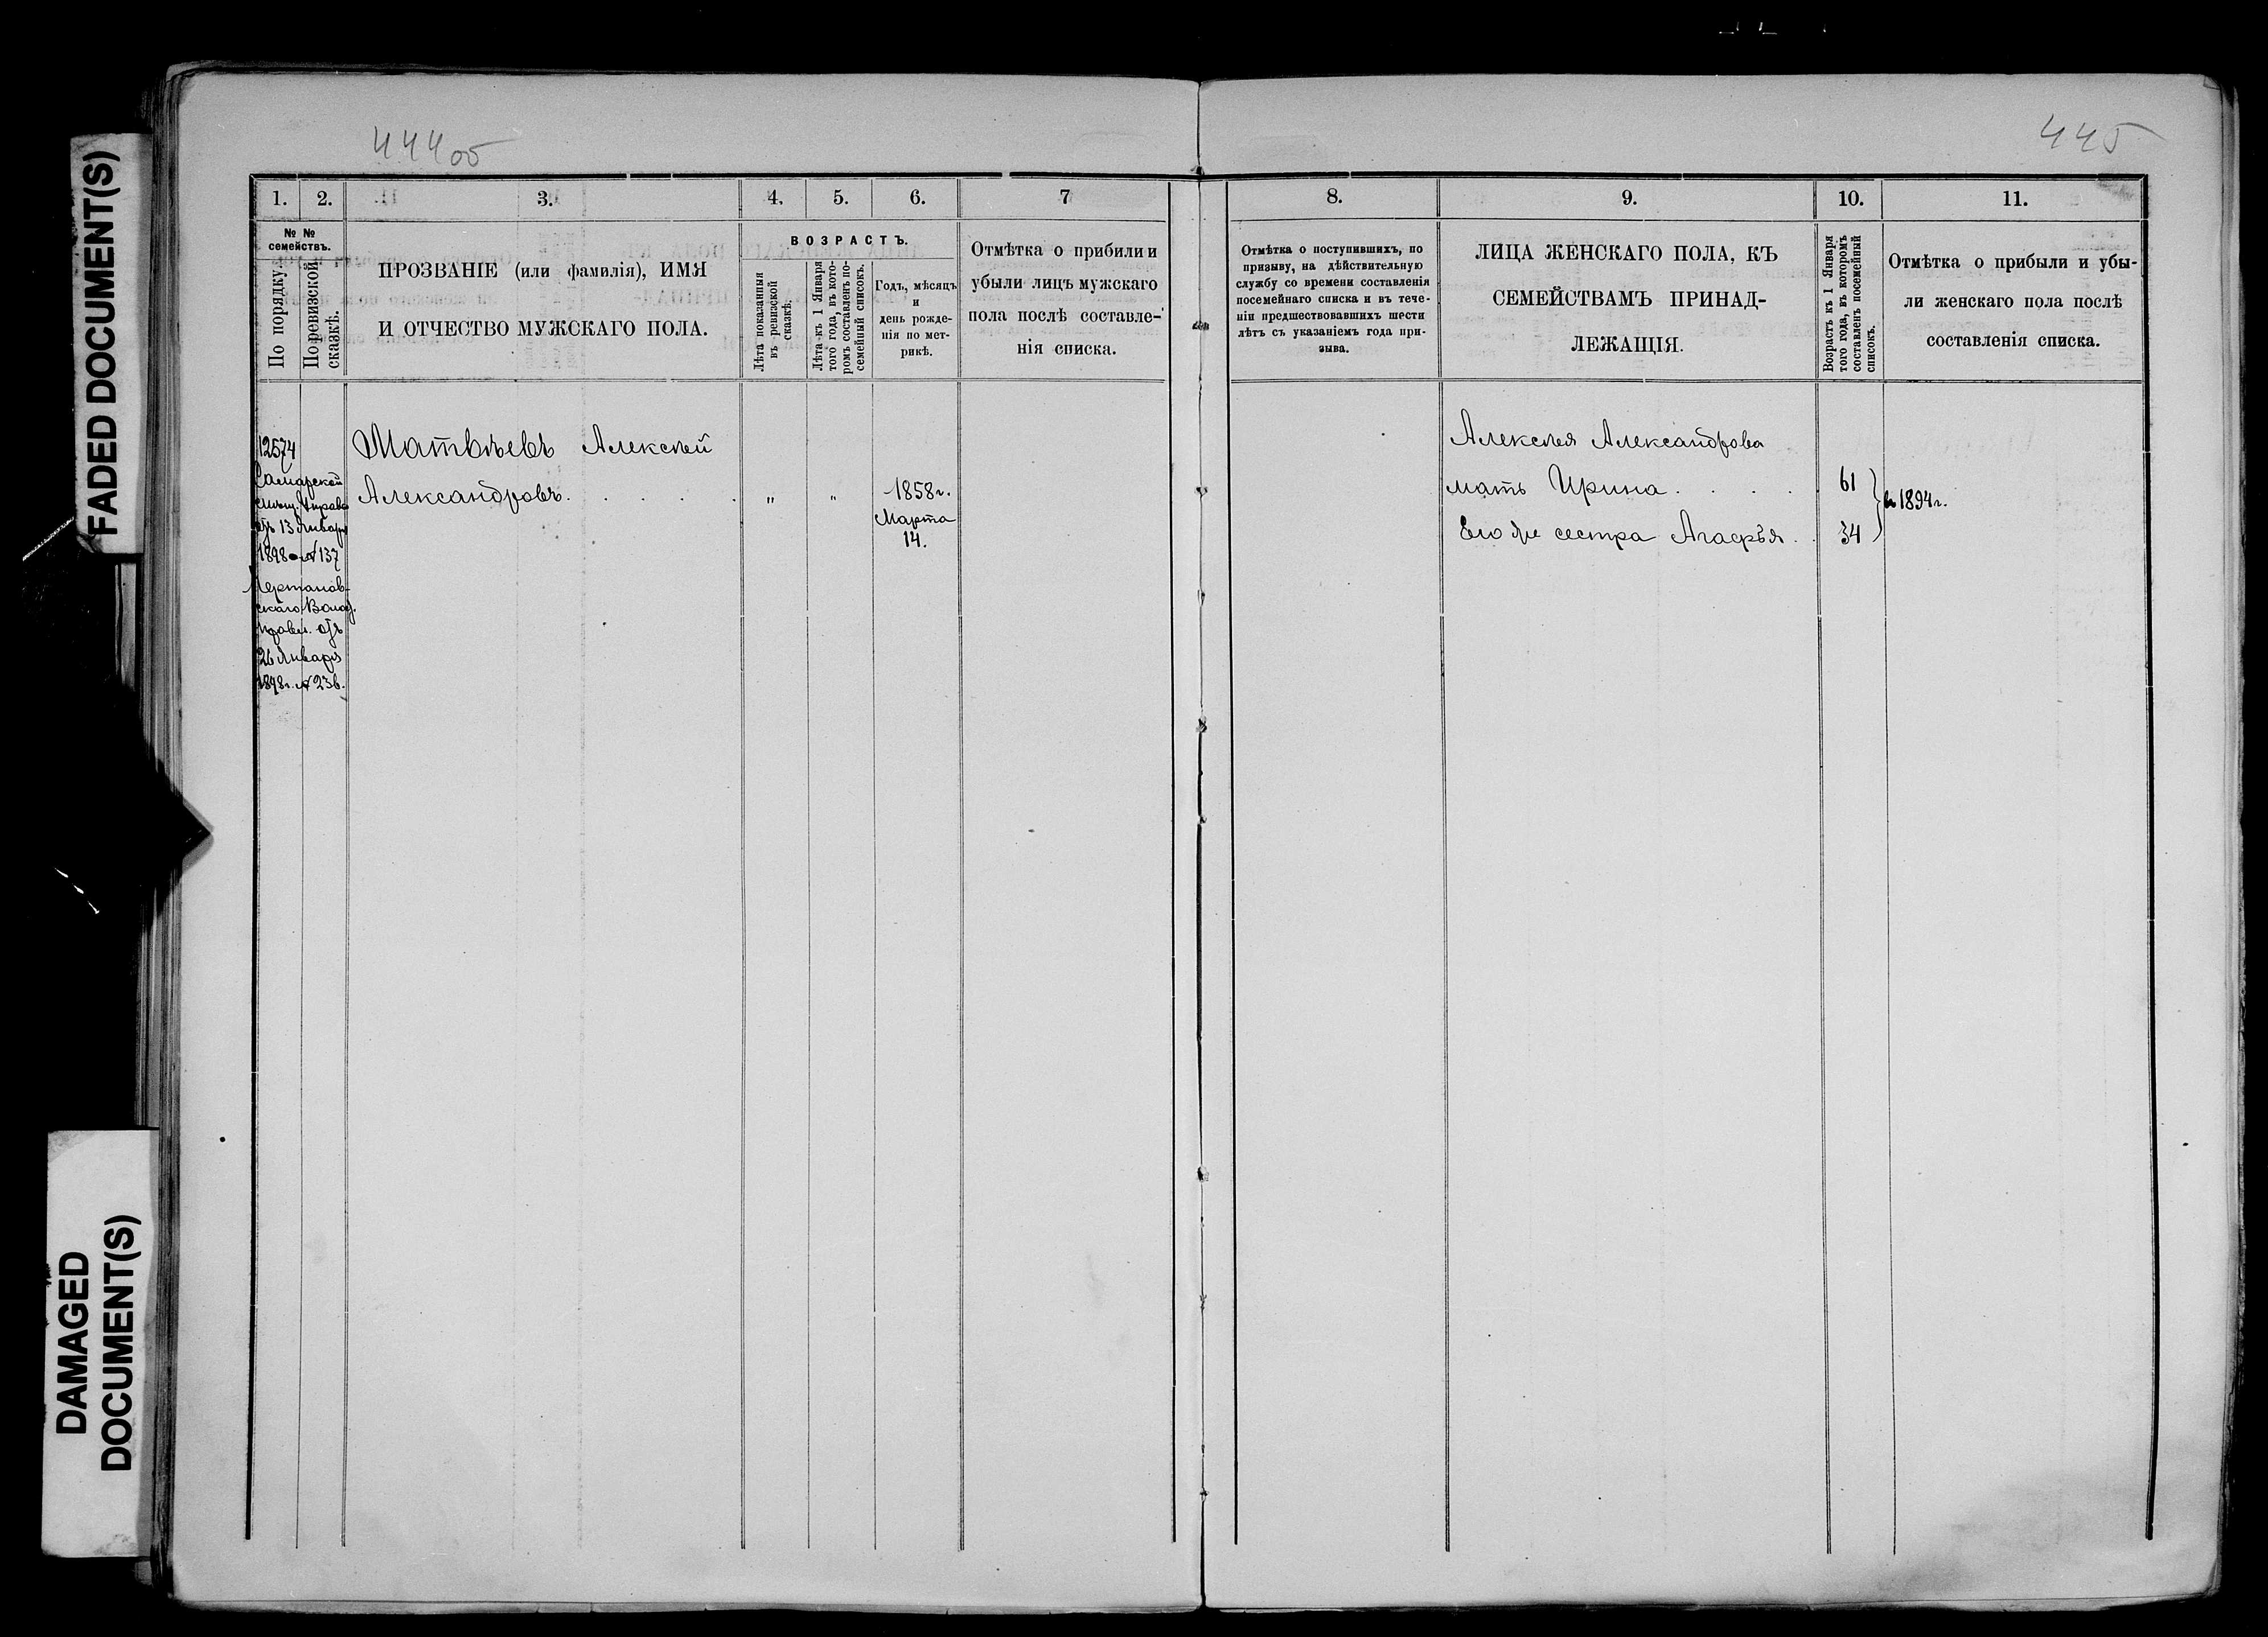 FADED DOCUMENT(S)
DAMAGED
DOCUMENT(S)
444об
1. 2. 3. 4. 5. 6. 7
№ №
семействъ.
По порядку.
По ревизской
сказкѣ.
ПРОЗВАНІЕ (или фамилія), ИМЯ
И ОТЧЕСТВО МУЖСКАГО ПОЛА.
ВОЗРАСТЪ.
Лѣта показанныя
въ ревизской
сказкѣ.
Лѣта къ 1 Января
того года, въ кото-
ромъ составленъ по-
семейный списокъ.
Годъ, мѣсяцъ
и
день рожде-
нія по мет-
рикѣ.
Отмѣтка о прибили и
убыли лицъ мужскаго
пола послѣ составле-
нія списка.
12574
Самарской
мѣщ. Управы
отъ 13 Января
1898 № 137
скаго Волос.
Правл. отъ
26 Января
1898г. № 236.
Матвѣевъ Алексѣй
Александровъ. . . . . „ „ 1858г.
Марта
14.
445
8. 9. 10. 11.
Отмѣтка о поступившихъ, по
призыву, на дѣйствительную
службу со времени составленія
посемейнаго списка и въ тече-
ніи предшествовавшихъ шести
лѣтъ съ указаніемъ года при-
зыва.
ЛИЦА ЖЕНСКАГО ПОЛА, КЪ
СЕМЕЙСТВАМЪ ПРИНАД-
ЛЕЖАЩІЯ.
Возрастъ къ 1 Января
того года, въ которомъ
составленъ посемейный
списокъ.
Отмѣтка о прибыли и убы-
ли женскаго пола послѣ
составленія списка.
Алексѣя Александрова
мать Ирина. . . . . 61
в 1894г.
Его же сестра Агафья. . 34